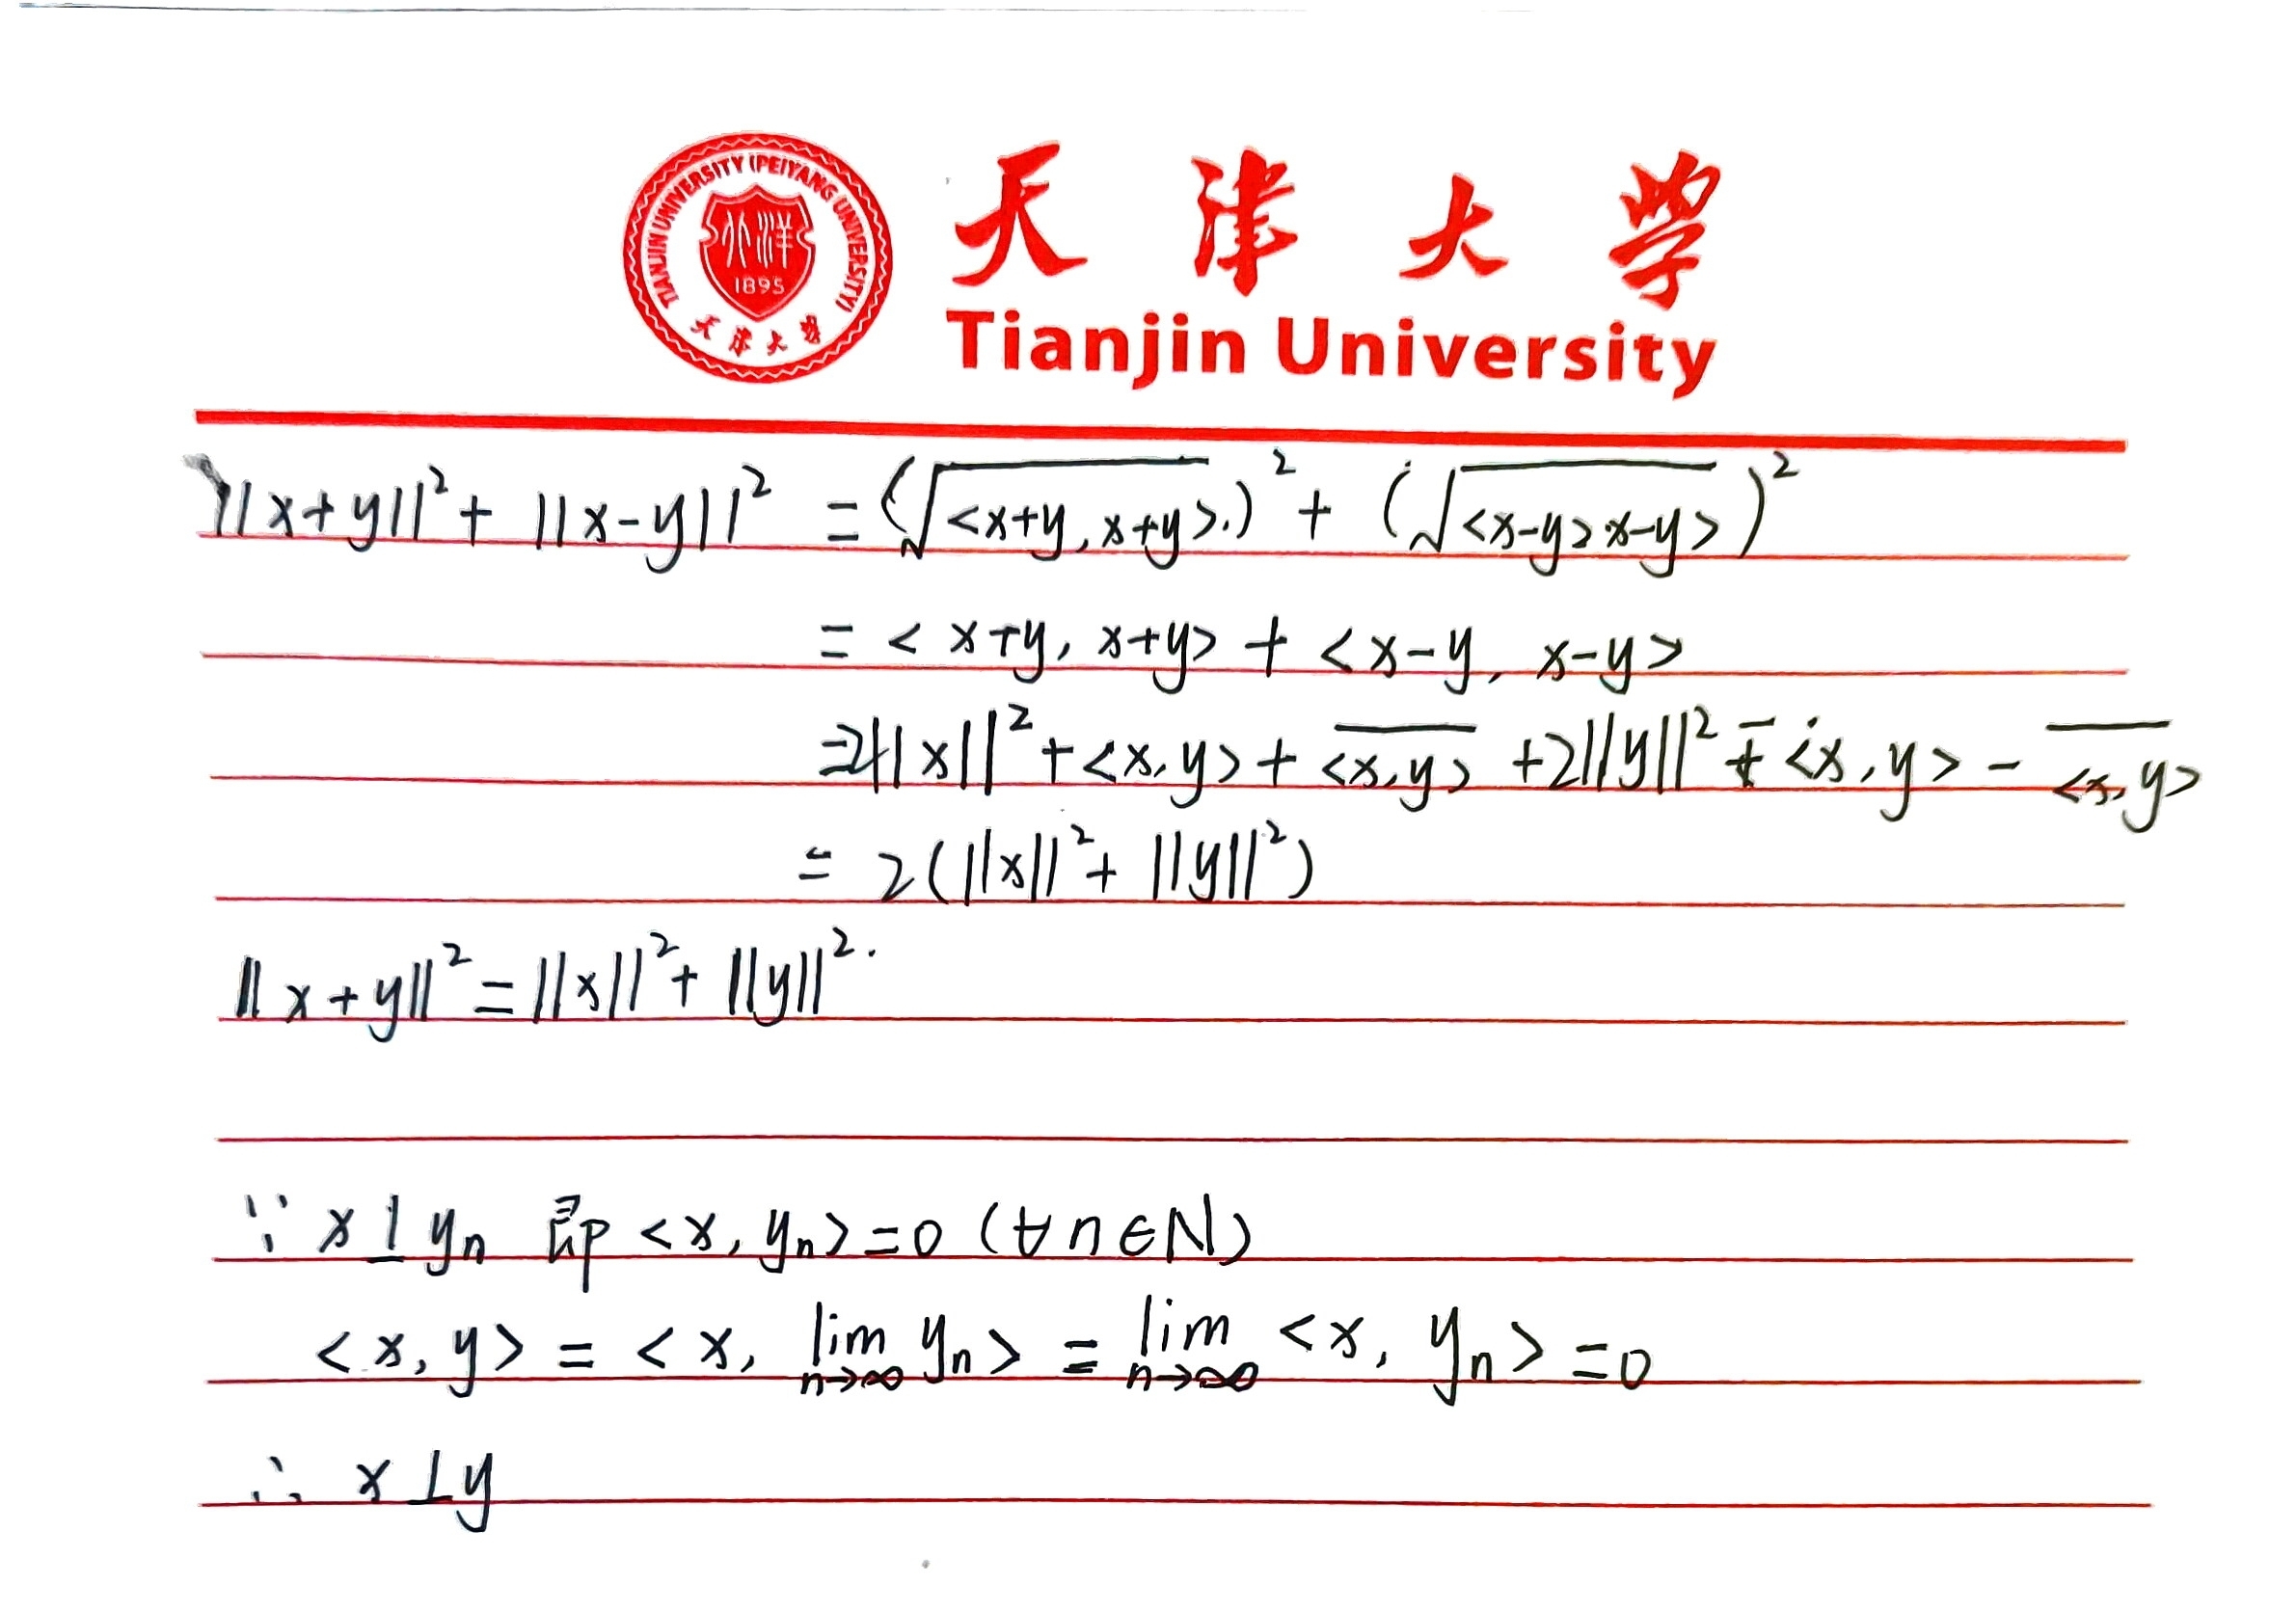 TIANJIN UNIVERSITY (PEIYANG UNIVERSITY)
北洋
1895
天津大学
天津大学
Tianjin University
||x+y||² + ||x-y||² = (√<x+y, x+y>.)² + (√<x-y, x-y>)²
= <x+y, x+y> + <x-y, x-y>
=2||x||² + <x,y> + \overline{<x,y>} + 2||y||² - <x,y> - \overline{<x,y>}
= 2(||x||² + ||y||²)
||x+y||² = ||x||² + ||y||².
∵ x⊥yₙ 即 <x, yₙ>=0 (∀n∈N)
<x,y> = <x, lim_{n→∞} yₙ> = lim_{n→∞} <x, yₙ> =0
∴ x⊥y